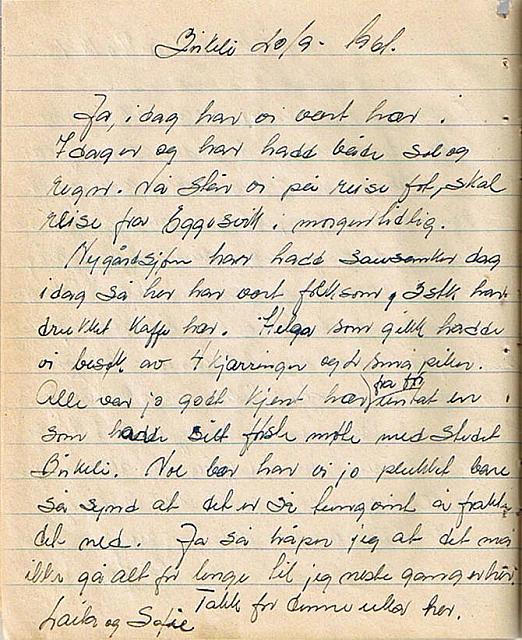 Birkeli 20/9-
Ja, i dag har vi vært her i
7 dager og har hadd både sol og
regn. Nå står vi på reise fot, skal
reise fra Eggesvik i morgen tidlig.
Nygårdsjøen har hadd sausanker dag
i dag så her har vort folksom, 3 stk har
drukket kaffe her. Helga som gikk hadde
vi besøk av 4 kjærringer og 2 små piker.
Alle var jo godt kjent her, fra før untat en
som hadde sitt første møte med stedet
Birkeli. Noe bær har vi jo plukket bare
så synd at det er så tungvint å frakte
det ned. Ja så håper jeg at det må
ikke gå alt for lenge til jeg neste gang er her.
Takk for denne uka her.
Laila og Sofie